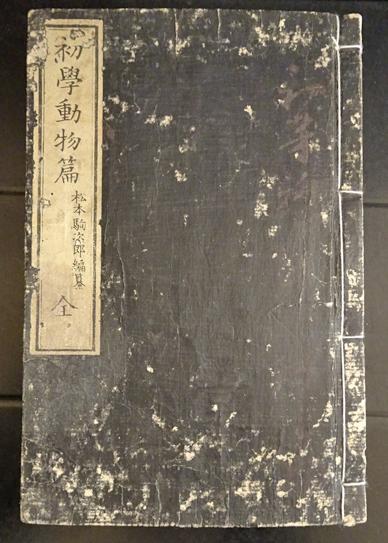 初學動物篇
松本駒次郎編纂
全